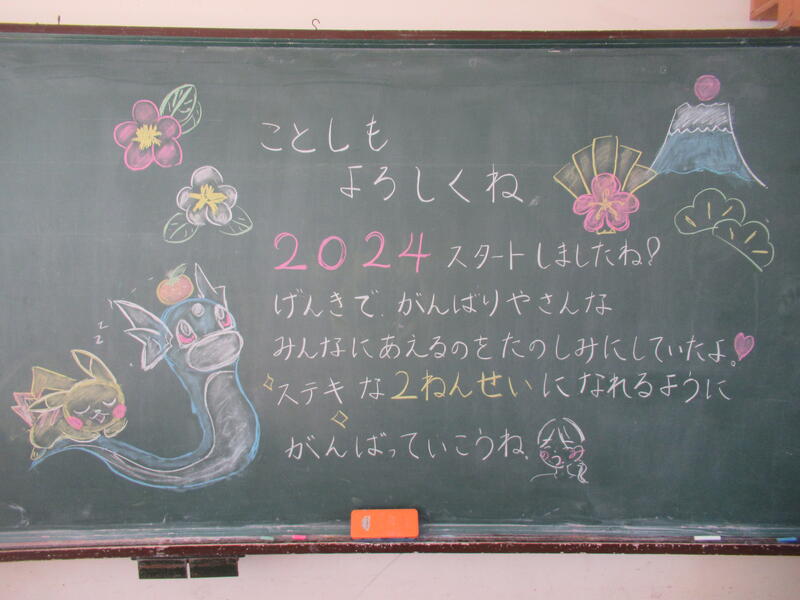 ことしも
よろしくね
2024 スタートしましたね!
げんきで、がんばりやさんな
みんなにあえるのをたのしみにしていたよ。
ステキな2ねんせいになれるように
がんばっていこうね。
z z z